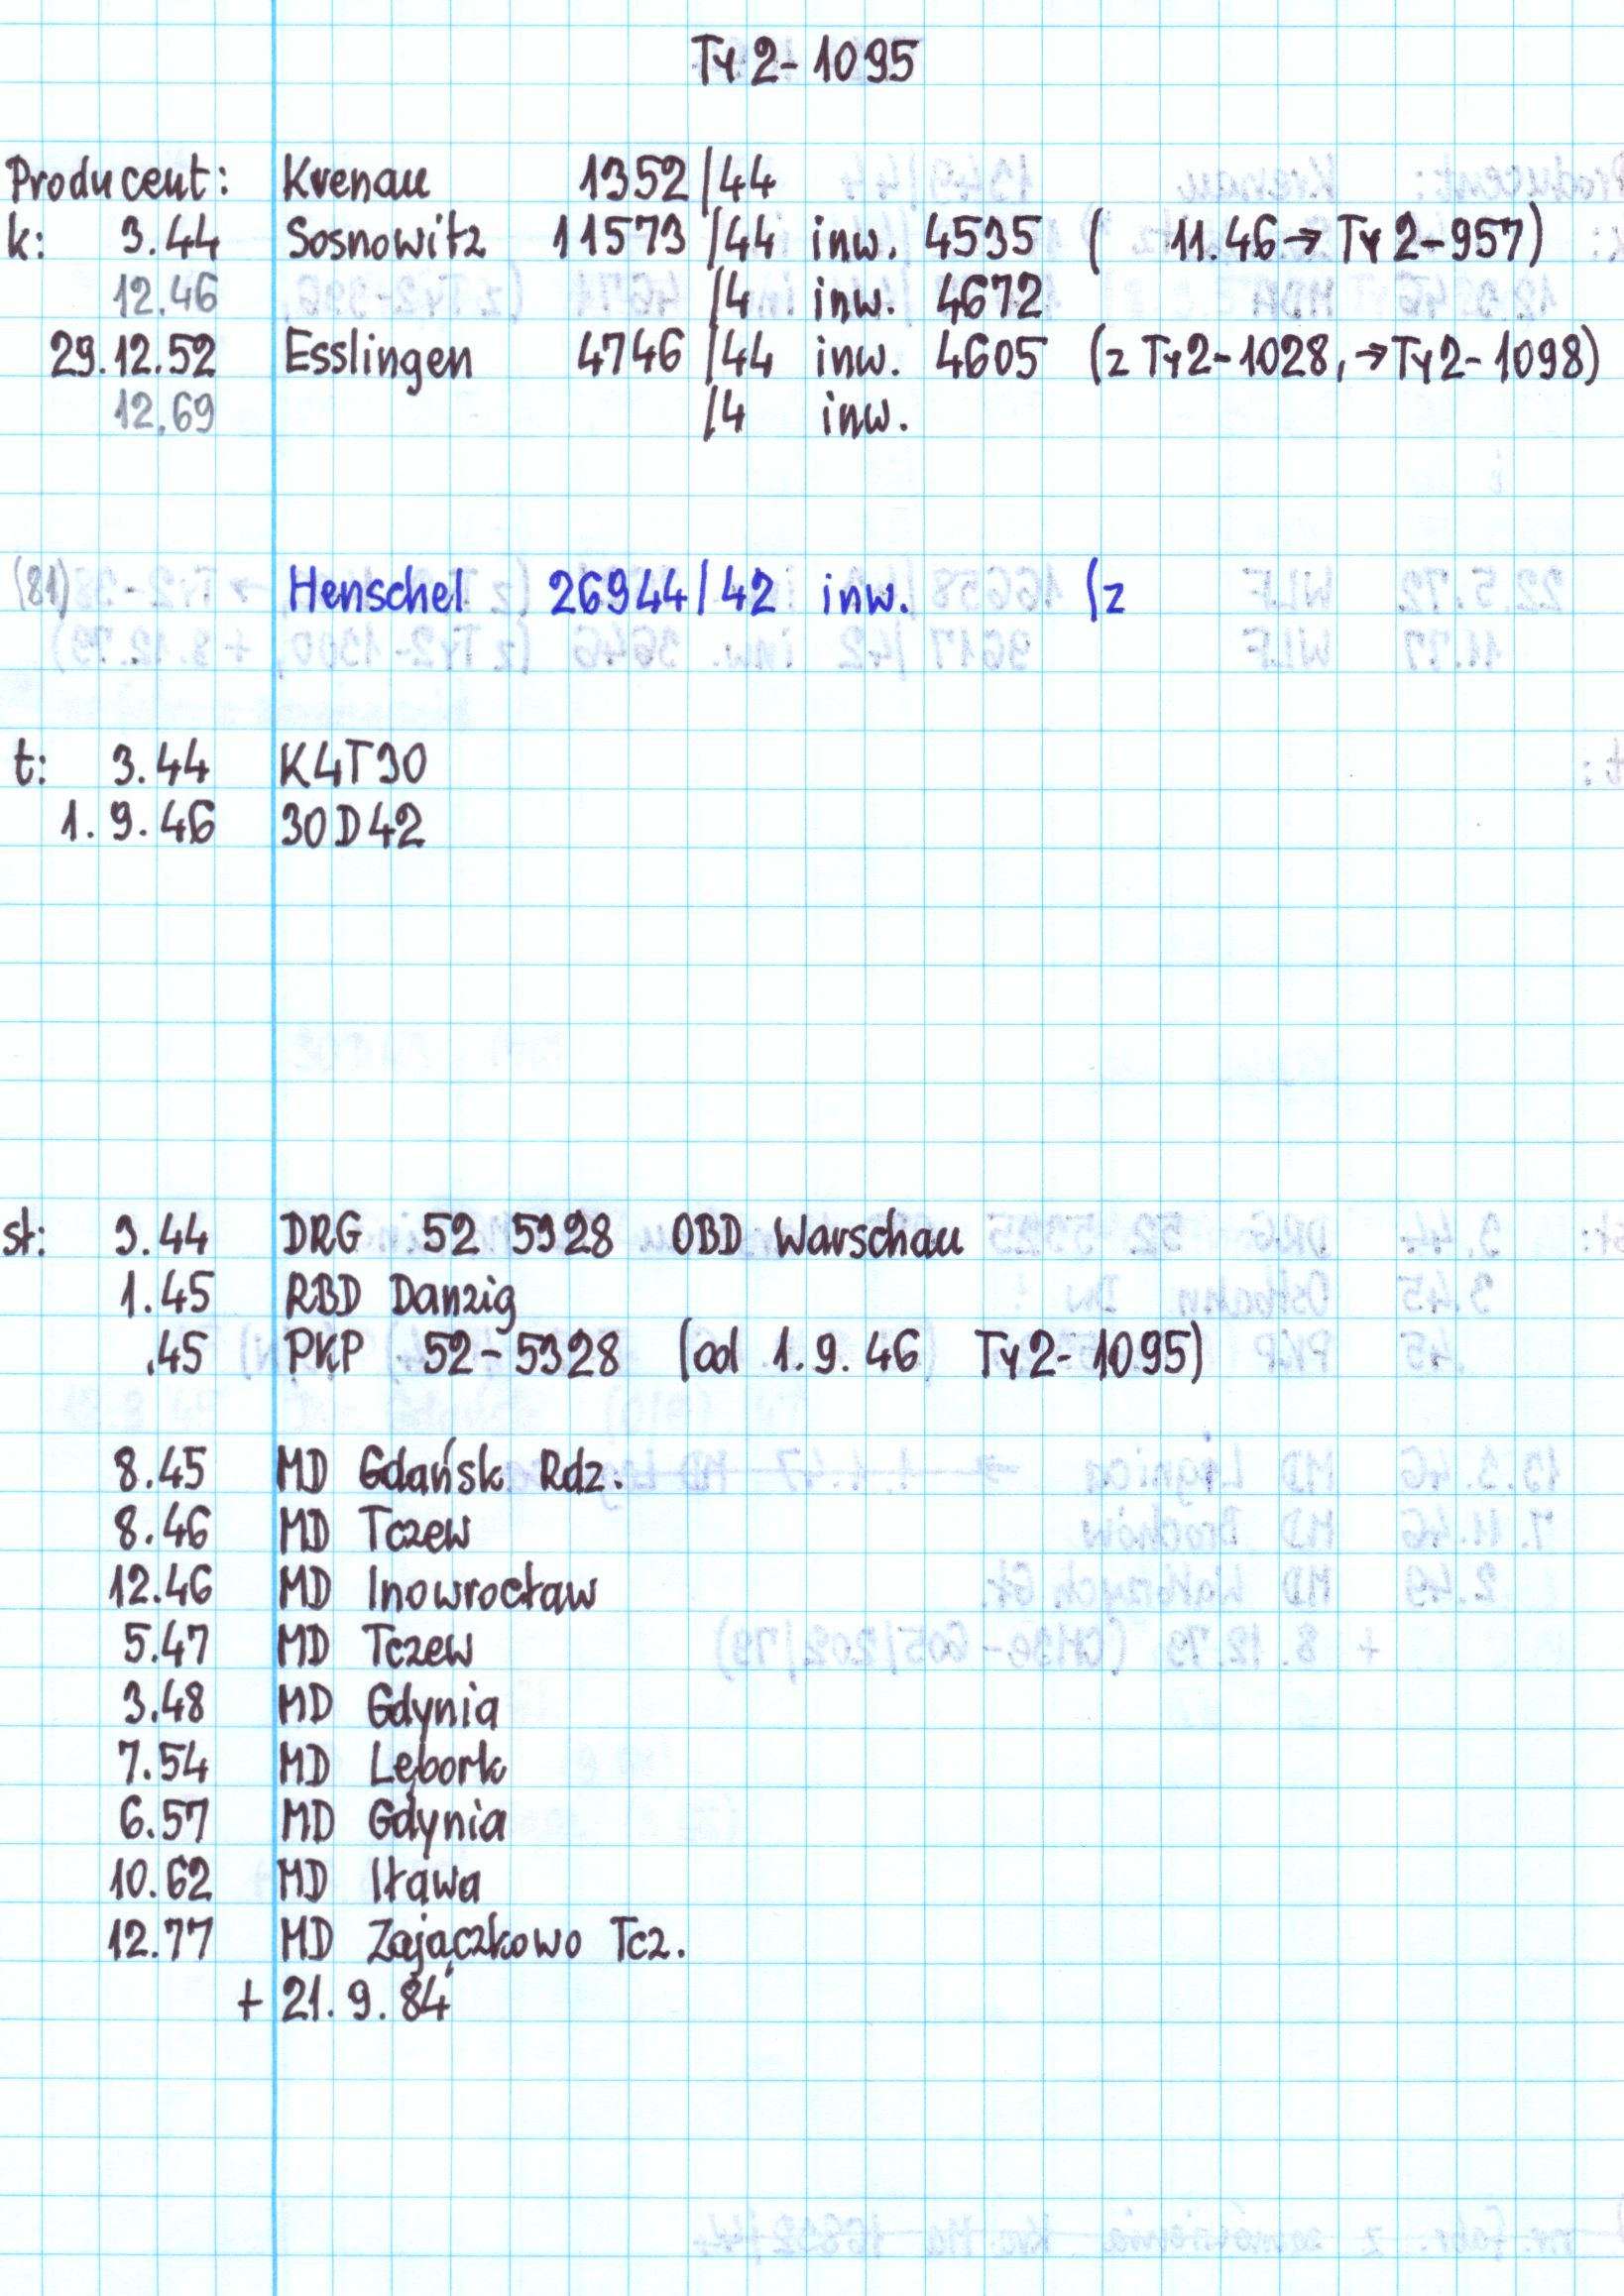 Ty2-1095
Producent: Krenau 1352/44
k: 3.44 Sosnowitz 11573/44 inw. 4535 ( 11.46→Ty2-957)
12.46 /4 inw. 4672
29.12.52 Esslingen 4746/44 inw. 4605 (z Ty2-1028, →Ty2-1098)
12.69 /4 inw.
(81) Henschel 26944/42 inw. (z
t: 3.44 K4T30
1.9.46 30D42
st: 3.44 DRG 52 5328 OBD Warschau
1.45 RBD Danzig
.45 PKP 52-5328 (od 1.9.46 Ty2-1095)
8.45 MD Gdańsk Rdz.
8.46 MD Tczew
12.46 MD Inowrocław
5.47 MD Tczew
3.48 MD Gdynia
7.54 MD Lębork
6.57 MD Gdynia
10.62 MD Iława
12.77 MD Zajączkowo Tcz.
+ 21.9.84